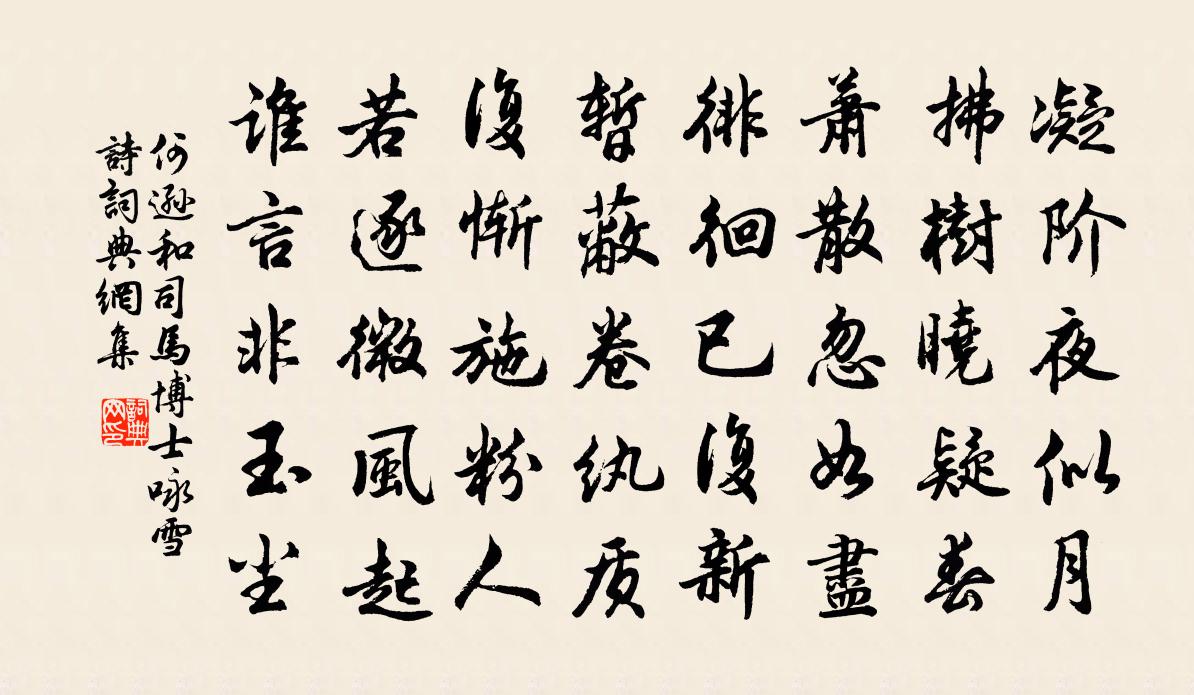 凝阶夜似月
拂樹曉疑春
蕭散忽如盡
徘徊已復新
暫蔽卷纨质
復慚施粉人
若逐微風起
誰言非玉尘
何遜和司馬博士咏雪
詩詞典網集
詞典
网印